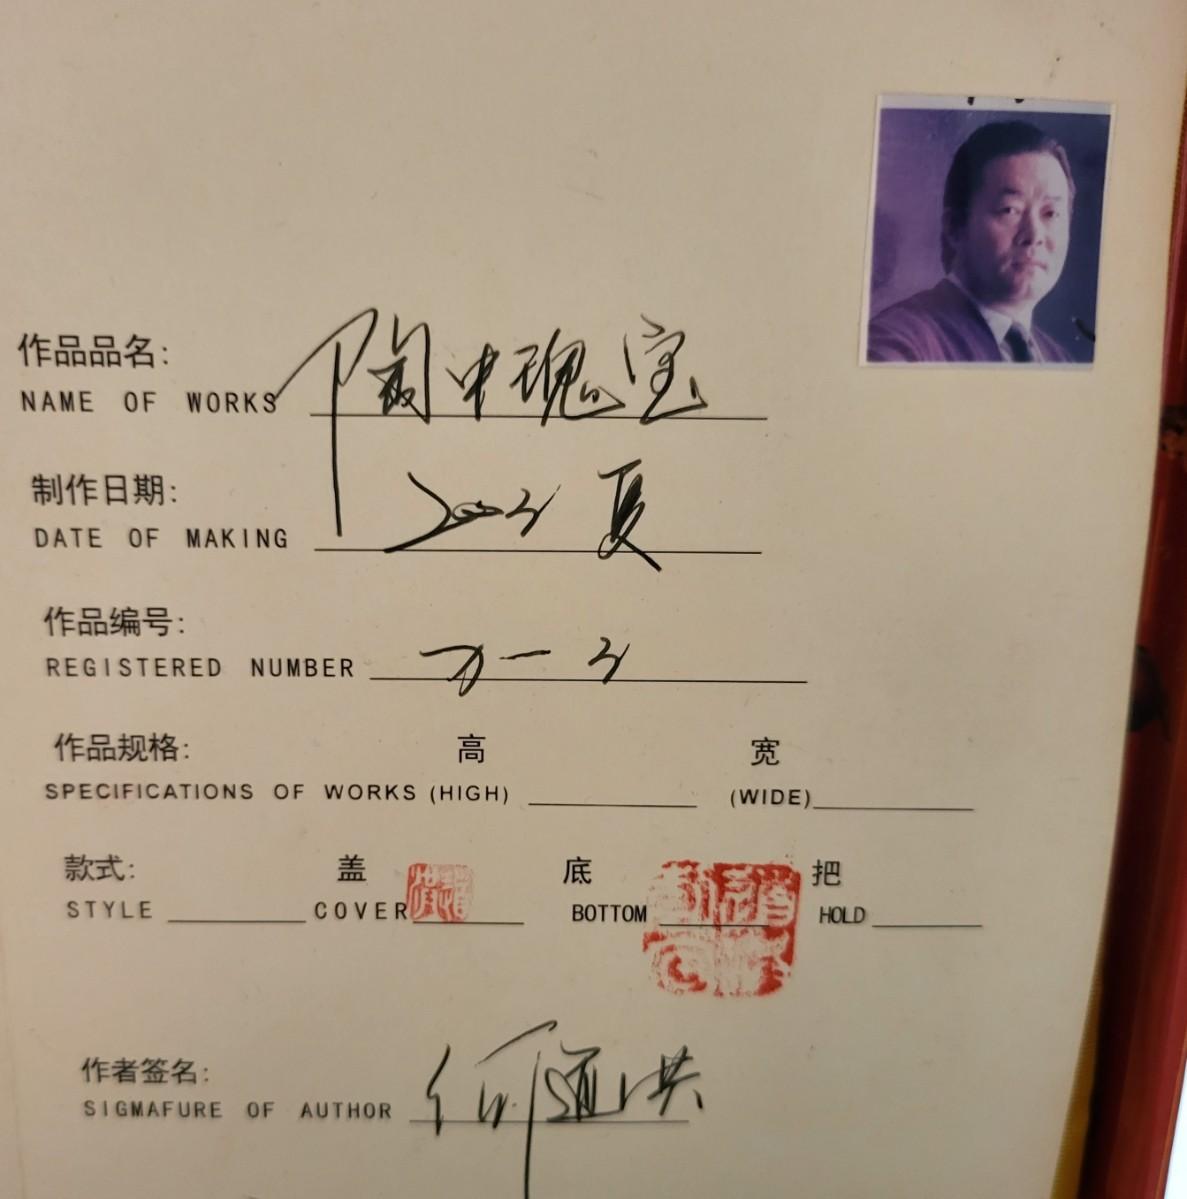 作品品名: 陶中瑰宝
NAME OF WORKS
制作日期: 夏
DATE OF MAKING
作品编号:
REGISTERED NUMBER
作品规格: 高 宽
SPECIFICATIONS OF WORKS (HIGH) (WIDE)
款式: 盖 底 把
STYLE COVER BOTTOM HOLD
作者签名: 何道洪
SIGMAFURE OF AUTHOR